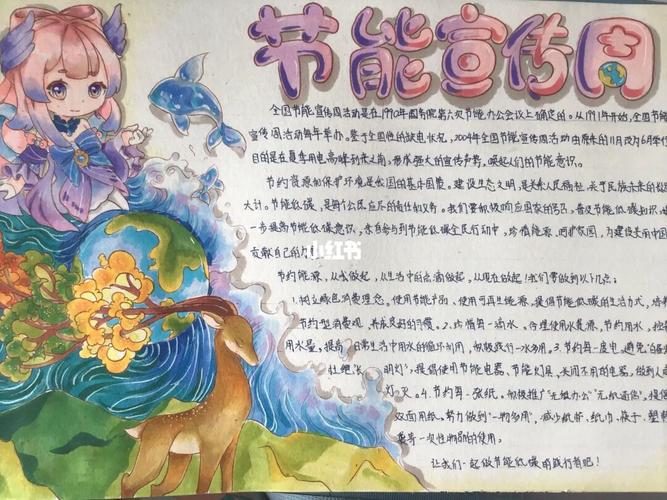 节能宣传周
全国节能宣传周活动是在1990年国务院第六次节能办公会议上确定的。从1991年开始,全国节能
宣传周活动每年举办。鉴于全国性的缺电状况,2004年全国节能宣传周活动由原来的11月改为6月举行
目的是在夏季用电高峰到来之前,形成强大的宣传声势,唤起人们的节能意识。
节约资源和保护环境是我国的基本国策。建设生态文明,是关系人民福祉,关乎民族未来的
大计。节能低碳,是每个公民应尽的责任和义务。我们要积极响应国家的号召,普及节能低碳知识
一步提高节能低碳意识,亲自参与到节能低碳全民行动中,珍惜能源、呵护家园,为建设美丽中国
贡献自己的力
小红书
节约能源,从我做起,从生活中的点滴做起,从现在做起!我们要做到以下几点:
1.树立绿色消费理念。使用节能产品、使用可再生能源,提倡节能低碳的生活方式,培养
节约型消费观,养成良好的习惯。2.珍惜每一滴水。合理使用水资源,节约用水,控
用水量,提高日常生活中用水的循环利用,积极践行一水多用。3.节约每一度电。避免"白
杜绝"长明灯",提倡使用节能电器、节能灯具,关闭不用的电器,做到人
灯灭。4.节约每一张纸。积极推广"无纸办公""无纸通信",提倡
双面用纸。努力做到"一物多用",减少纸杯、纸巾、筷子、塑料
袋等一次性物品的使用。
让我们一起做节能低碳的践行者吧!